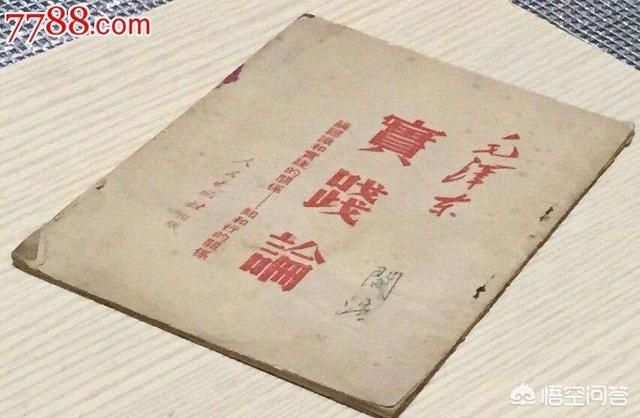 7788.com
毛澤东
實踐論
論認識和實踐的關係——知和行的關係
人民出版社
悟空问答